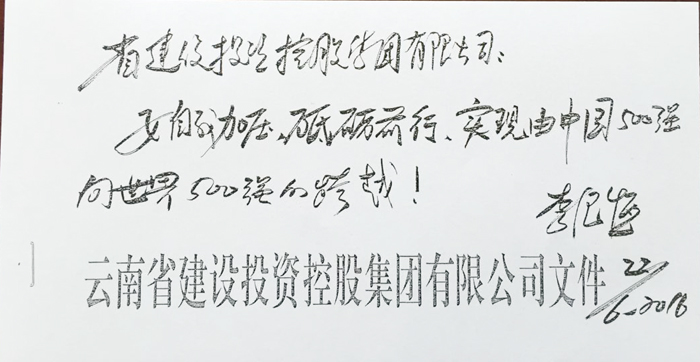 省建设投资控股集团有限公司：
要自我加压、砥砺前行、实现由中国500强
向世界500强的跨越！
李
云南省建设投资控股集团有限公司文件
22/6-2016